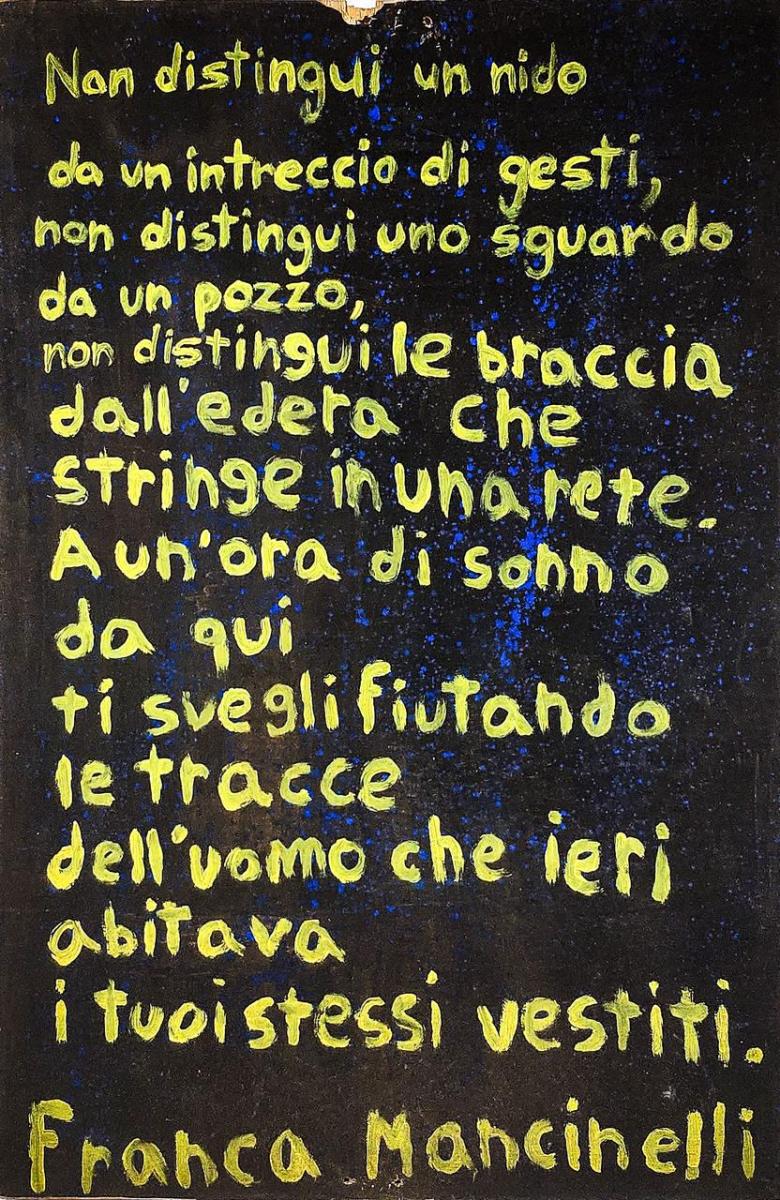 Non distingui un nido
da un intreccio di gesti,
non distingui uno sguardo
da un pozzo,
non distingui le braccia
dall'edera che
stringe in una rete.
A un'ora di sonno
da qui
ti svegli fiutando
le tracce
dell'uomo che ieri
abitava
i tuoi stessi vestiti.
Franca Mancinelli